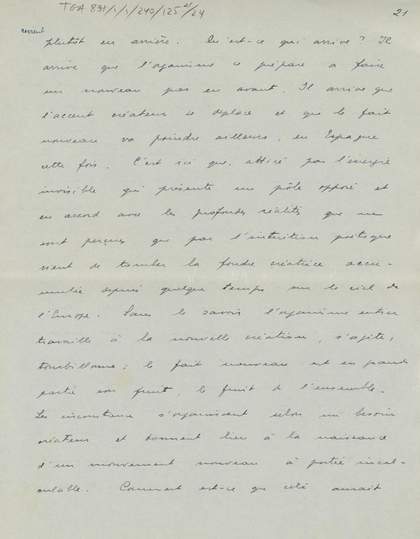 TGA 891/1/1/240/125 21/24
21
revient
plutôt en arrière. Qu'est-ce qui arrive? Il
arrive que l'organisme se prépare a faire
un nouveau pas en avant. Il arrive que
l'accent créateur se déplace et que le fait
nouveau va poindre ailleurs, en Espagne
cette fois. C'est ici que, attiré par l'énergie
invisible qui présente un pôle opposé et
en accord avec les profondes réalités que ne
sont perçues que par l'intuition poétique
vient de tomber la foudre créatrice accu-
mulée depuis quelque temps sur le ciel de
l'Europe. Sans le savoir l'organisme entier
travaille à la nouvelle création, s'agite,
tourbillonne; le fait nouveau est en grande
partie son fruit, le fruit de l'ensemble.
Les circonstances s'organisent selon un besoin
créateur et donnent lieu à la naissance
d'un mouvement nouveau à portée incal-
culable. Comment est-ce que cela aurait